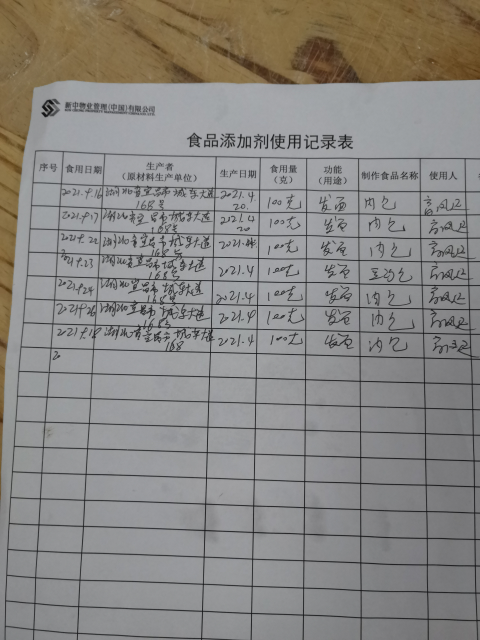 新中物业管理(中国)有限公司
食品添加剂使用记录表
序号 食用日期 生产者（原材料生产单位） 生产日期 食用量（克） 功能（用途） 制作食品名称 使用人
2021.9.16 湖北省宜昌市城东大道168号 2021.4.20. 100克 发面 肉包
2021.9.17 湖北省宜昌市城东大道168号 2021.4.20 100克 发面 肉包
2021.9.22 湖北省宜昌市城东大道168号 2021.4 100克 发面 肉包
2021.9.23 湖北省宜昌市城东大道168号 2021.4 100克 发面 包
2021.9.24 湖北省宜昌市城东大道168号 2021.4 100克 发面 肉包
2021.9.26 湖北宜昌市城东大道168号 2021.4 100克 发面 肉包
2021.9.18 湖北省宜昌市城东大道168 2021.4 100克 发面 肉包
2